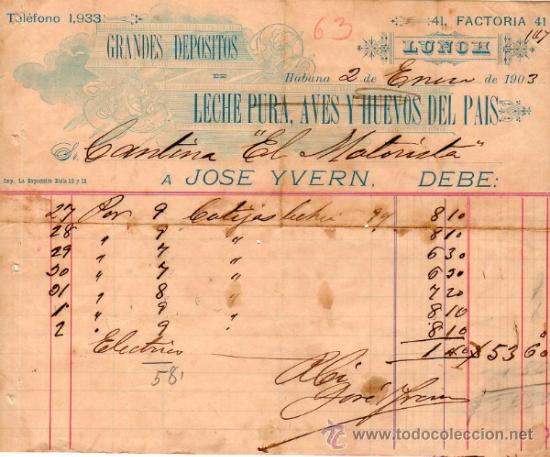 Teléfono 1,933.
63
41, FACTORIA 41
107
GRANDES DEPOSITOS
LUNCH
DE
Habana 2 de Enero de 1903
LECHE PURA, AVES Y HUEVOS DEL PAIS
Sr. Cantina "El Motorista"
Imp. La Exposición
A JOSE YVERN, DEBE:
27 Por 9 Botijas leche 90 8 10
28 " 9 " 8 10
29 " 7 " 6 30
30 " 7 " 6 30
31 " 8 " 7 20
1 " 9 " 8 10
2 " 9 " 8 10
Electrico 1 40 $53 60
58
Recibí
José Yvern
www.todocoleccion.net